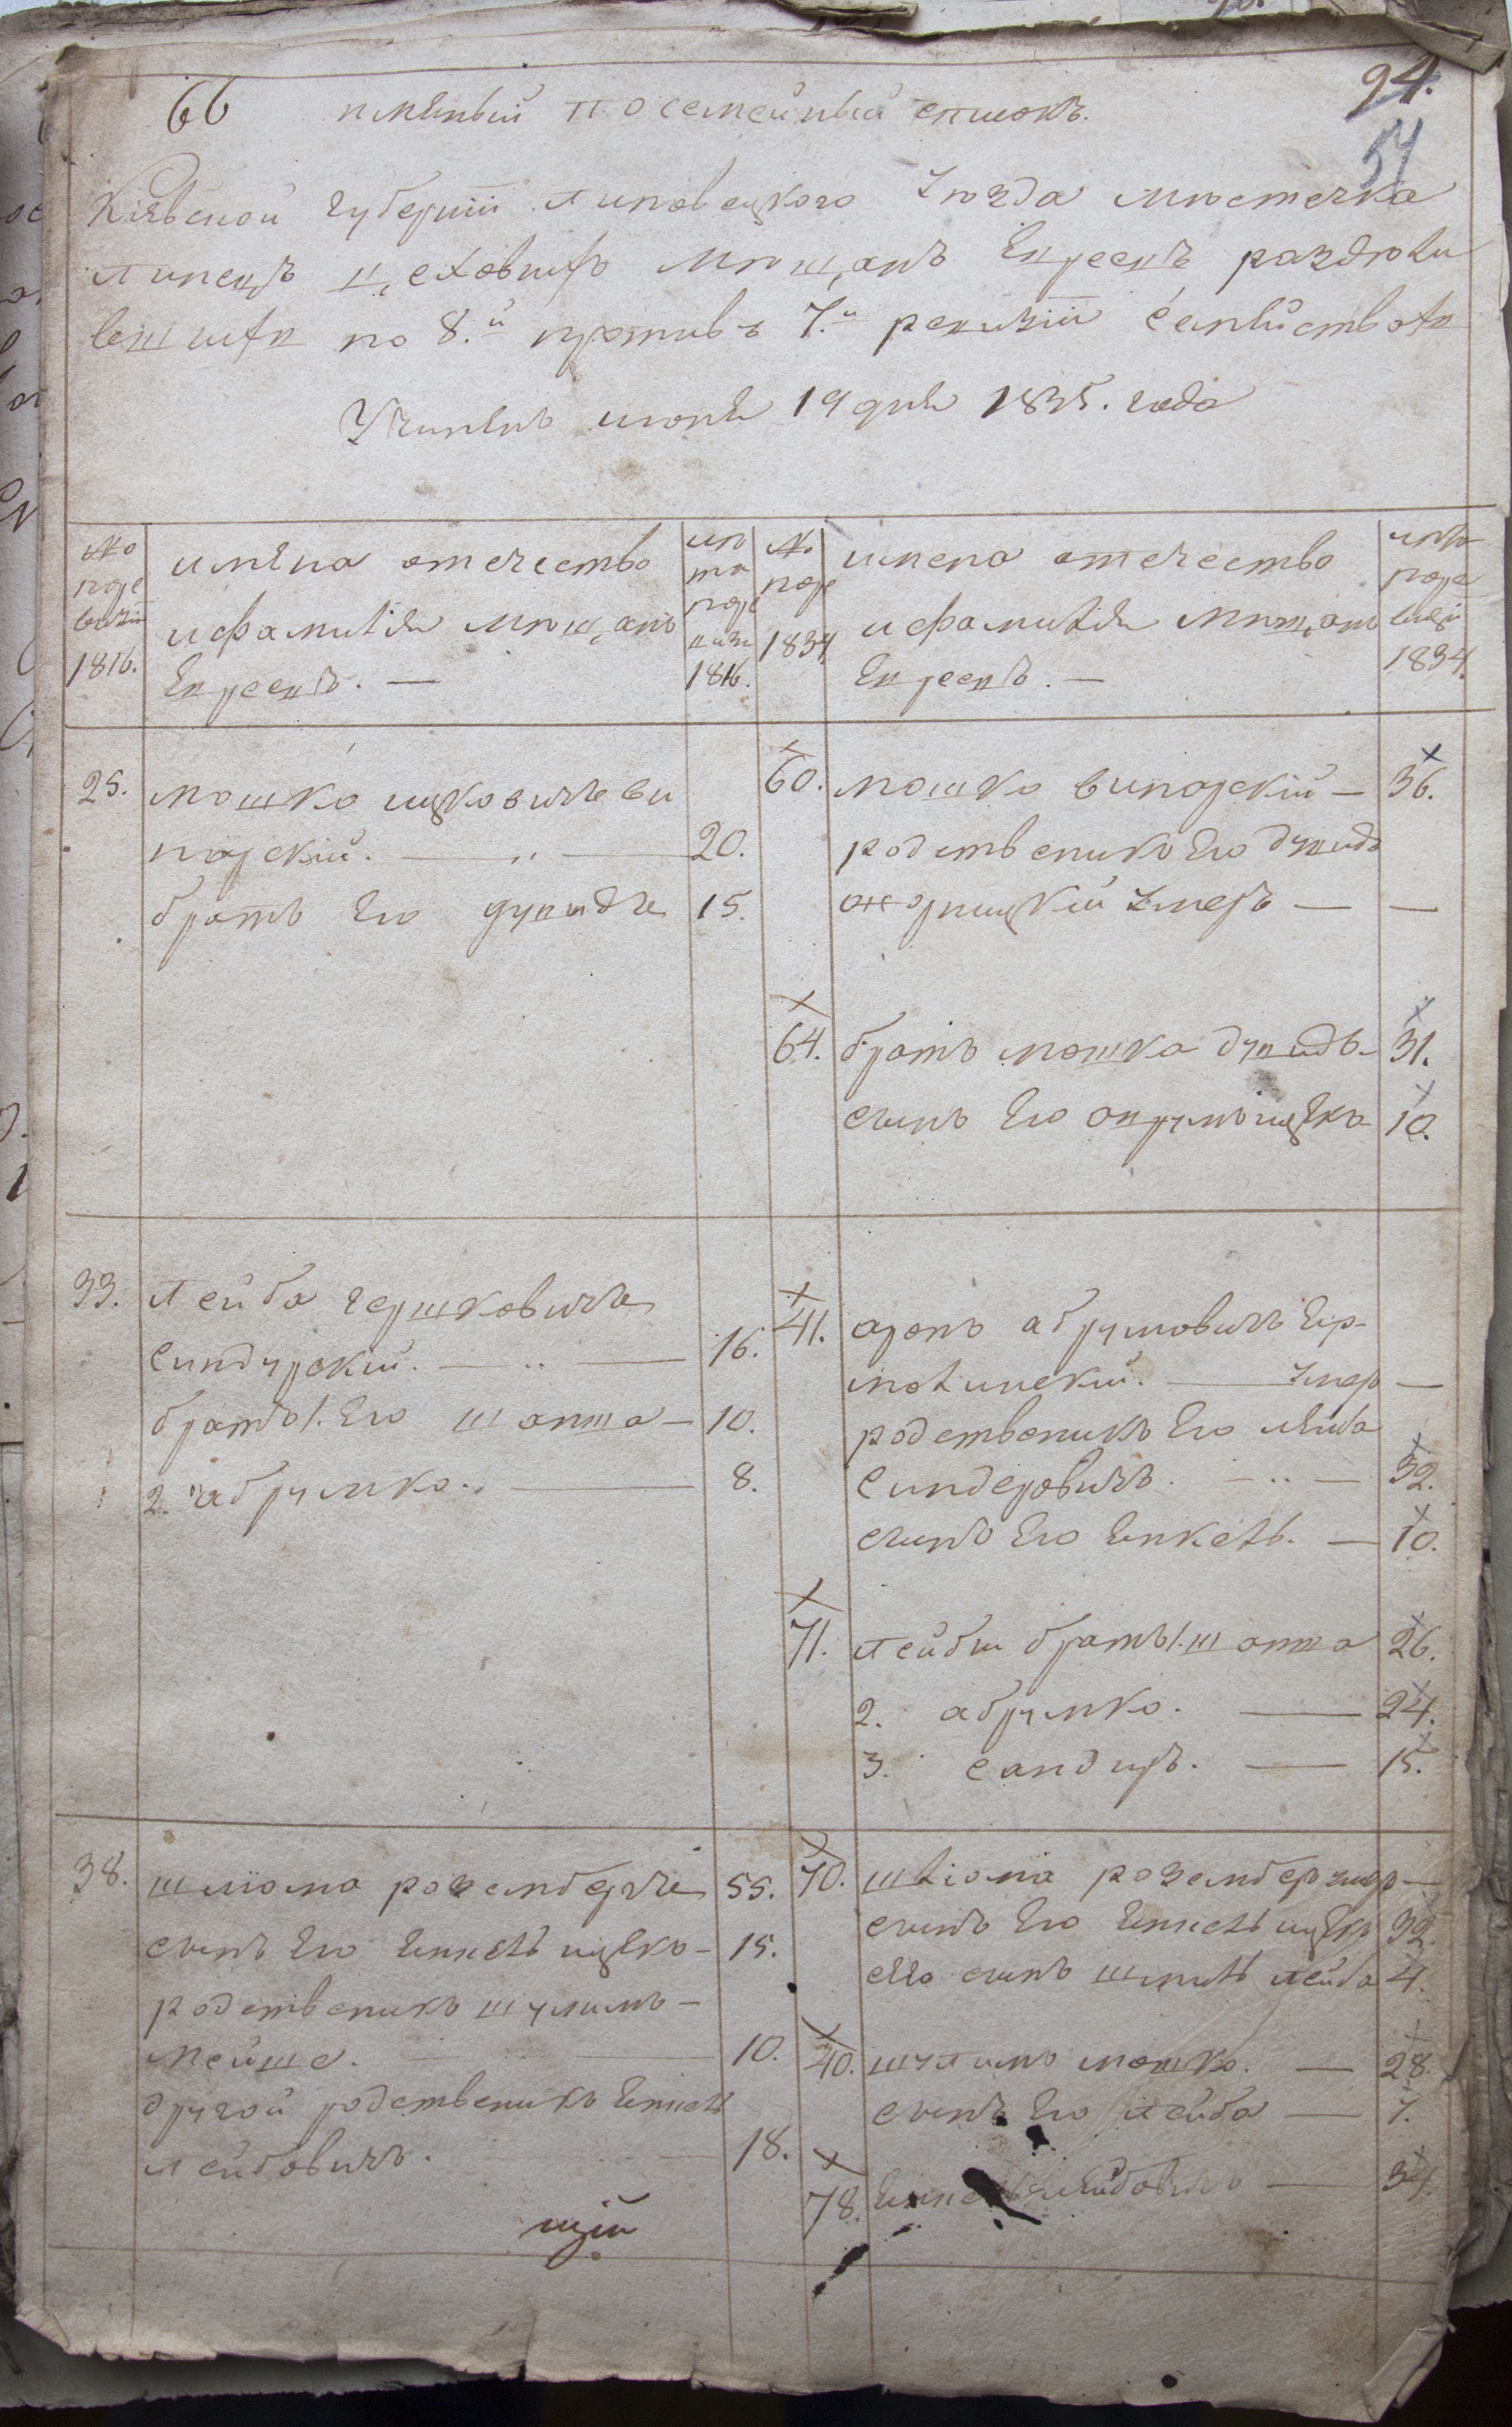 66 именный посемейный списокъ.
94.
54
Кіевской губерніи Липовецкого Уѣзда мѣстечка
Липецъ цеховыхъ мѣщанъ Евреевъ раздѣли
вшихся по 8.й противъ 7.й ревизіи семействахъ
Учиненъ июня 19 дня 1835. года
№ по ре визіи 1816.
имена отечество
и фамиліи мѣщанъ
Евреевъ. —
лѣ та по ре визи 1816.
№ по ре 1834
имена отечество
и фамиліи мѣщанъ
Евреевъ. —
лѣта по ре визіи 1834.
25. мошко ицковичъ ви
норскій. — 20.
братъ его дувидъ 15.
60. мошко винорскій — 36.
родственикъ Его дувидъ
умеръ — —
64. братъ мошка дувидъ — 31.
сынъ Его аврумъ ицко 10.
33. Лейба гершковичъ
синдурскій. — 16.
братья 1. Его шапша — 10.
2. абрумко. — 8.
41. аронъ абрумовичъ
умер —
родственикъ Его лейба
синдеровичъ. — 32.
сынъ Его Янкель. — 10.
71. Лейбы братья 1. шапша 26.
2. абрумко. — 24.
3. сандиръ. — 15.
38. шліома розенбергъ 55.
сынъ Его Янкель ицко — 15.
родственикъ шулимъ —
мейше. 10.
другой родственикъ Янкель
лейбовичъ. 18.
70. шліома розенберг умер —
сынъ Его Янкель ицко 32.
Его сынъ шмиль лейба 4.
40. шулимъ мошко. — 28.
сынъ Его лейба — 7.
78. Янкель лейбовичъ — 34.
щій